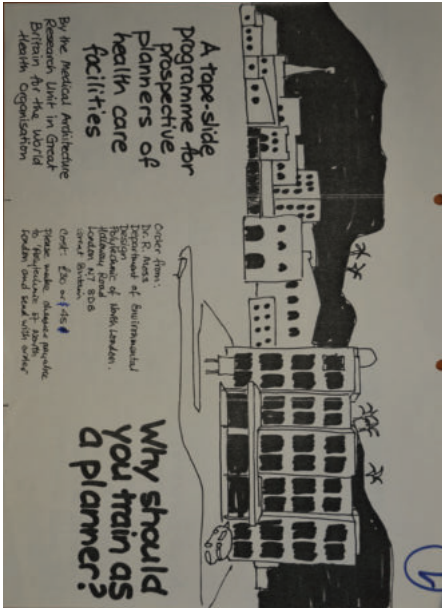 A tape-slide
programme for
prospective
planners of
health care
facilities
By the Medical Architecture
Research Unit in Great
Britain for the World
Health Organisation
Order from:
Dr. R. Moss
Department of Environmental
Design
Polytechnic of North London.
Holloway Road
London N7 8DB
Great Britain
Cost: £30 or $45
Please make cheques payable
to 'Polytechnic of North
London' and send with order
Why should
you train as
a planner?